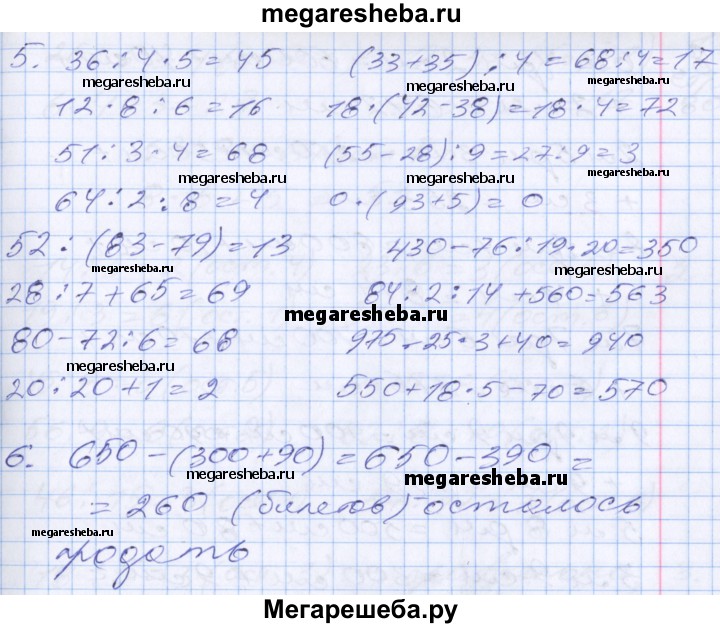 megaresheba.ru
5. 36 : 4 · 5 = 45 (33+35) : 4 = 68 : 4 = 17
megaresheba.ru megaresheba.ru
12 · 8 : 6 = 16 18 · (42 - 38) = 18 · 4 = 72
51 : 3 · 4 = 68 (55 - 28) : 9 = 27 : 9 = 3
megaresheba.ru megaresheba.ru
64 : 2 : 8 = 4 0 · (93 + 5) = 0
52 : (83 - 79) = 13 430 - 76 : 19 · 20 = 350
megaresheba.ru megaresheba.ru
28 : 7 + 65 = 69 84 : 2 : 14 + 560 = 563
megaresheba.ru
80 - 72 : 6 = 68 975 - 25 · 3 + 40 = 940
megaresheba.ru
20 : 20 + 1 = 2 550 + 18 · 5 - 70 = 570
6. 650 - (300 + 90) = 650 - 390 =
megaresheba.ru megaresheba.ru
= 260 (билетов) - осталось
megaresheba.ru
продать
Мегарешеба.ру